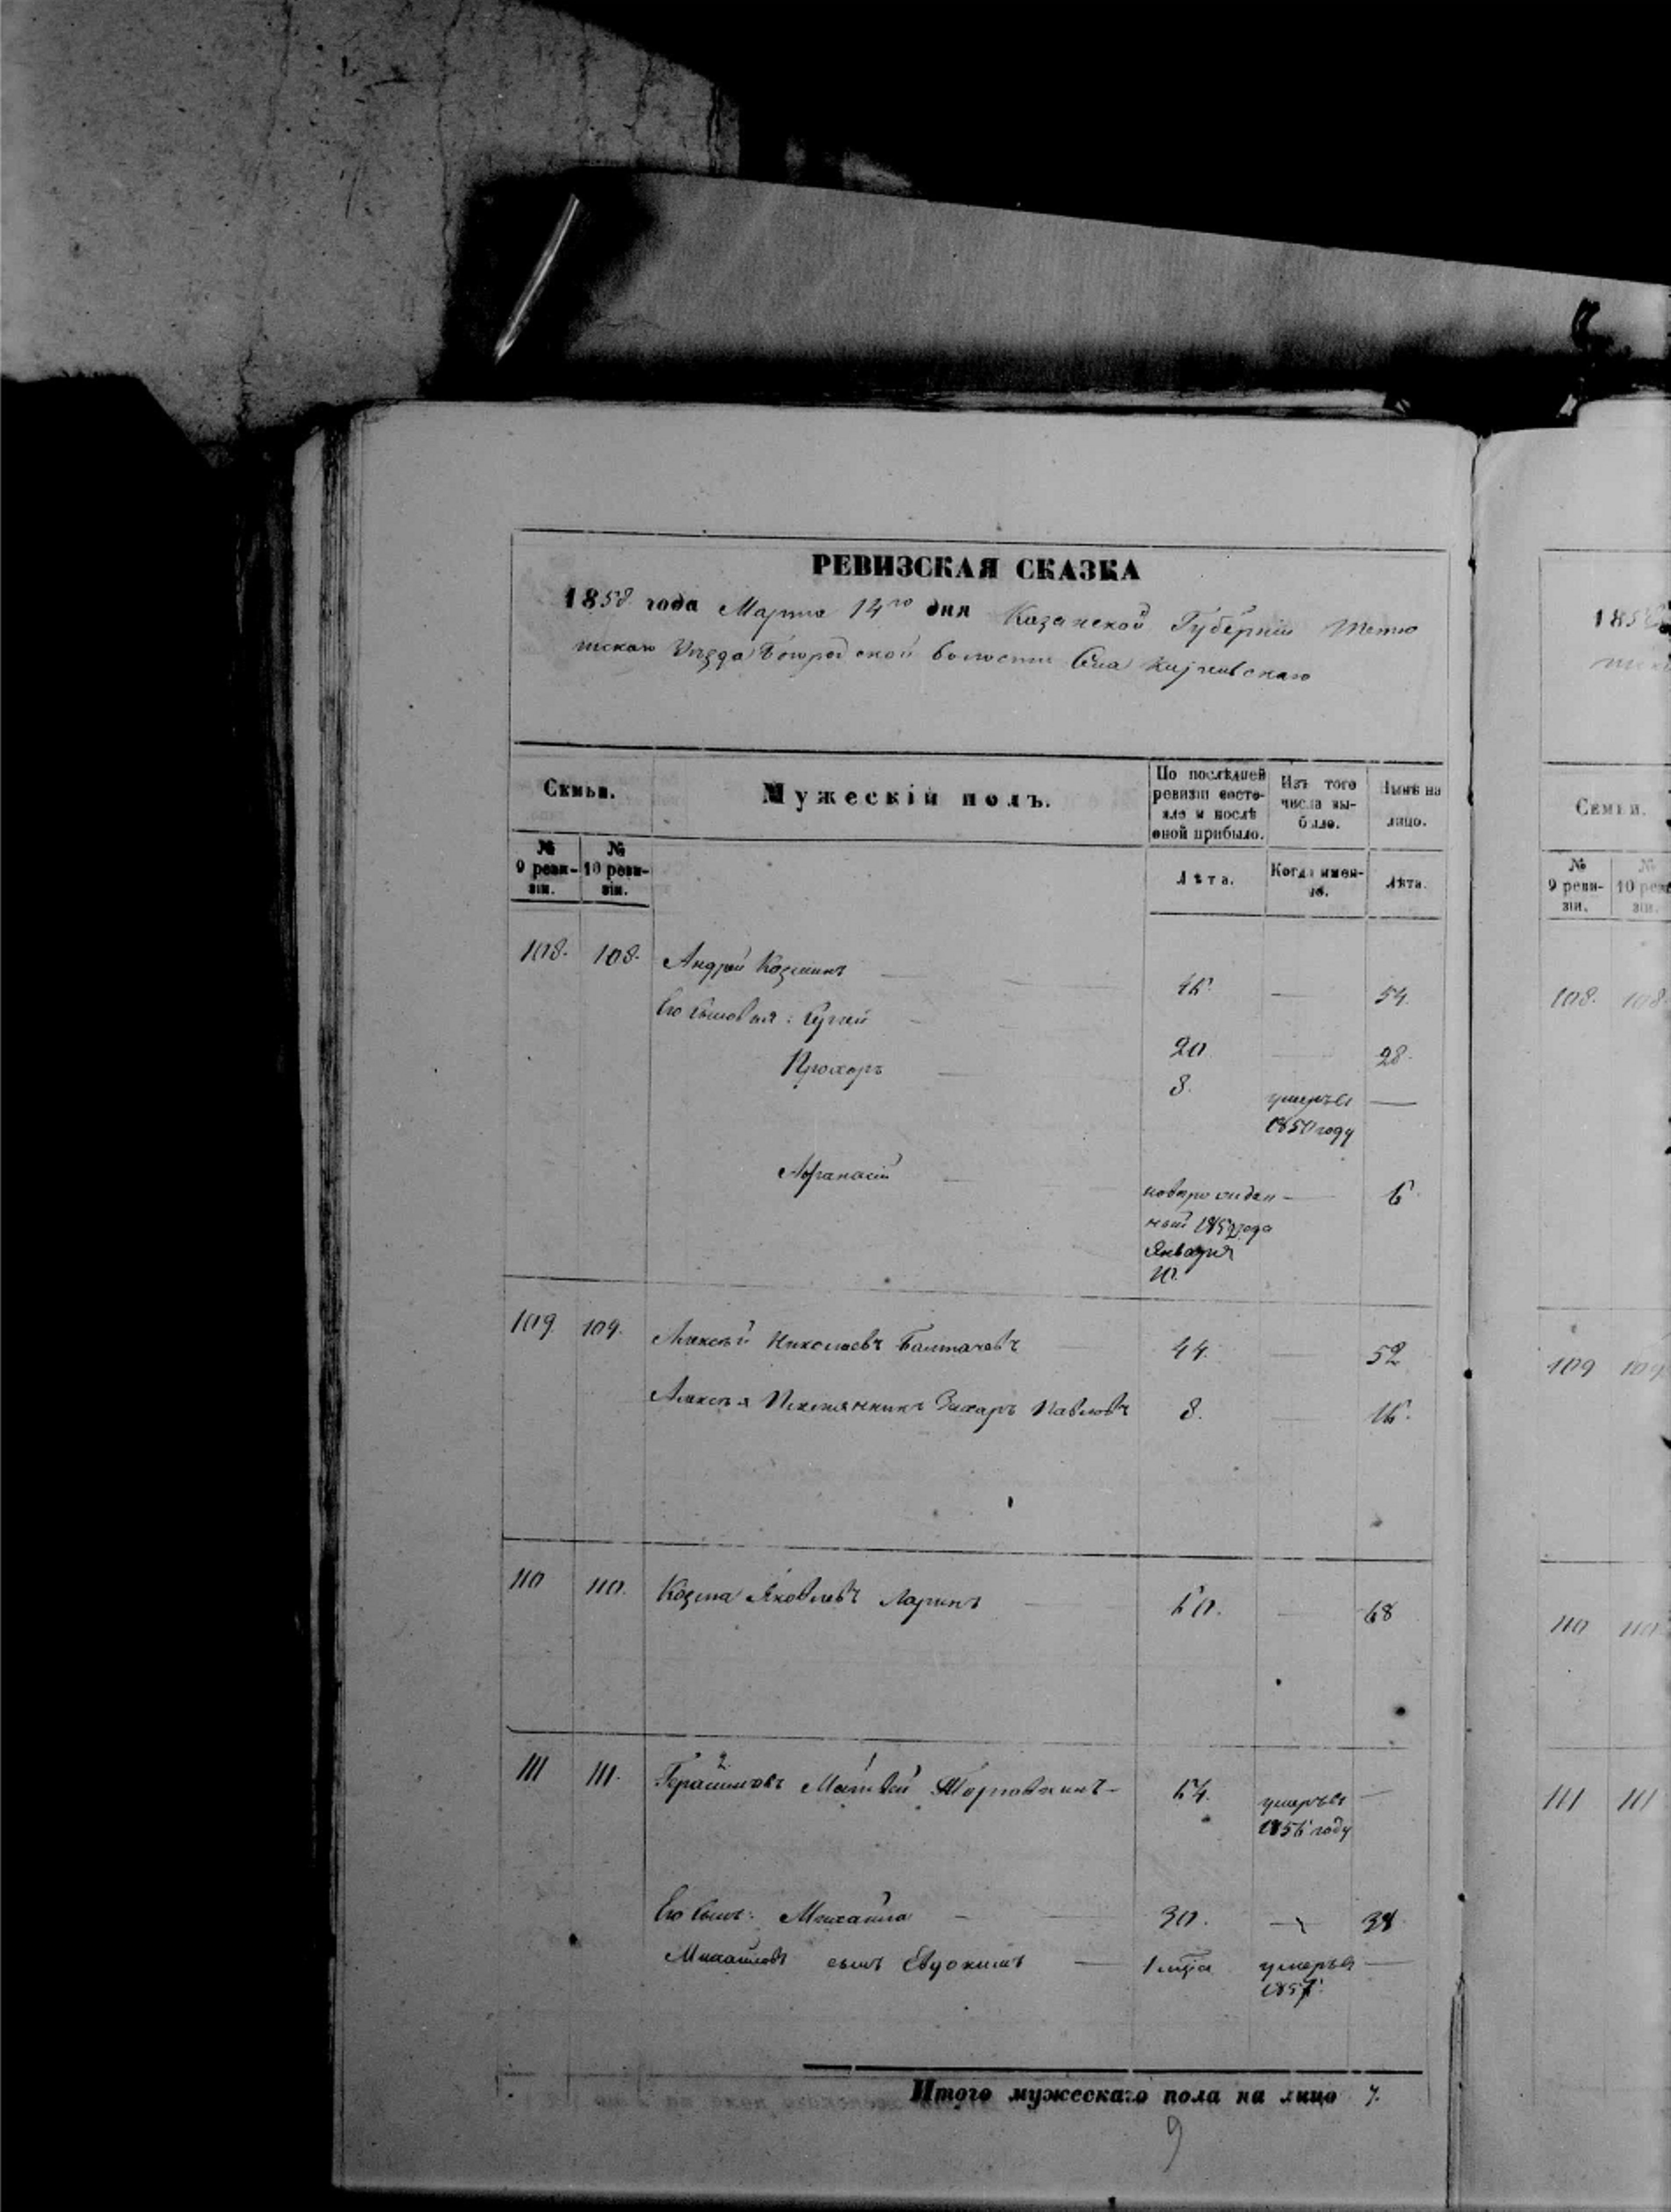 РЕВИЗСКАЯ СКАЗКА
1858 года Марта 14го дня Казанской Губерніи Тетю
шскаго Уѣзда Богород ской волости Села
Семьи.
Мужескій полъ.
По послѣдней ревизіи состо-
яло и послѣ оной прибыло.
Изъ того числа вы-
было.
Нынѣ на лицо.
№ 9 реви-
зіи.
№ 10 реви-
зіи.
Лѣта.
Когда имен-
но.
Лѣта.
108. 108. Андрей Козминъ — 46. — 54.
Его сыновья: Сергей 20 — 28.
Прохоръ — 8. умеръ въ —
1850 году
Афанасій — новорожден — 6.
ный 1852 года
Января
10.
109. 109. Алексѣй Николаевъ Балтачевъ 44. — 52
Алексѣя Племянникъ Захаръ Павловъ 8. — 16.
110 110. Козма Яковлевъ Ларинъ — 60. — 68
111 111. Герасимовъ Матвей — 64. умеръ въ —
1856 году
2 1
Его сынъ: Михайла — 30. — 38.
Михайловъ сынъ Евдокимъ — 1 мѣсца умеръ въ —
1857.
Итого мужескаго пола на лицо 7.
9
185
Семьи.
№ 9 реви-
зіи.
№ 10 реви
зіи.
108. 108.
109 109
110 110
111 111